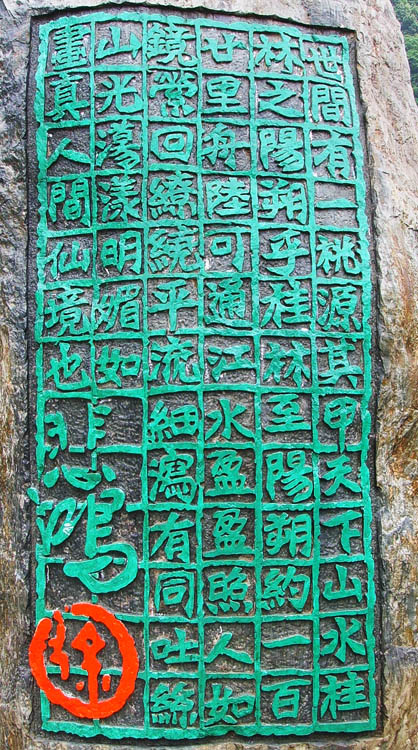 世間有一桃源其甲天下山水桂
林之陽朔乎桂林至陽朔約一百
廿里舟陸可通江水盈盈照人如
鏡縈回繚繞平流細瀉有同吐絲
山光蕩漾明媚如
畫真人間仙境也
悲鴻